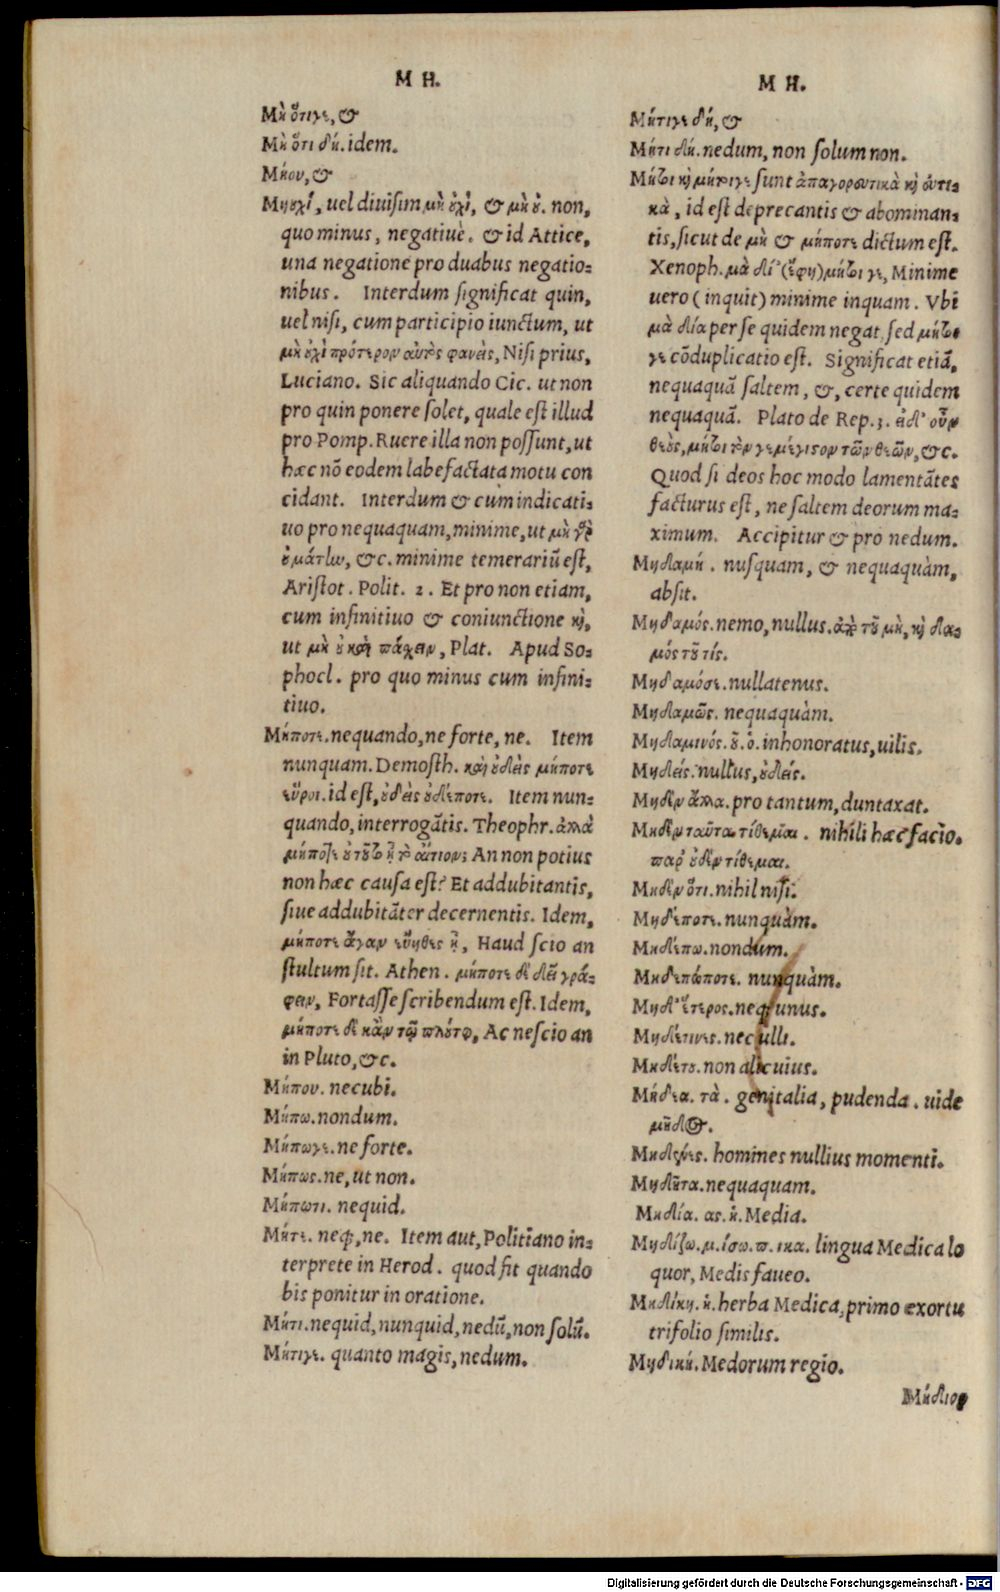 M H.
Μὴ ὅτιγε, &
Μὴ ὅτι δή. idem.
Μήου, &
Μηουχί, uel diuisim μὴ οὐχί, & μὴ οὐ. non,
quo minus, negatiuè. & id Attice,
una negatione pro duabus negatio=
nibus. Interdum significat quin,
uel nisi, cum participio iunctum, ut
μὴ οὐχὶ πρότερον αὐτὸς φανεὶς, Nisi prius,
Luciano. Sic aliquando Cic. ut non
pro quin ponere solet, quale est illud
pro Pomp. Ruere illa non possunt, ut
hæc nō eodem labefactata motu con
cidant. Interdum & cum indicati=
uo pro nequaquam, minime, ut μὴ γὰρ
οὐ μάτlω, &c. minime temerariū est,
Aristot. Polit. 2. Et pro non etiam,
cum infinitiuo & coniunctione καὶ,
ut μὴ οὐ καὶ πάχειν, Plat. Apud So=
phocl. pro quo minus cum infini=
tiuo.
Μήποτε. nequando, ne forte, ne. Item
nunquam. Demosth. καὶ οὐδεὶς μήποτε
εὕροι. id est, οὐδεὶς οὐδέποτε. Item nun=
quando, interrogātis. Theophr. ἀλλὰ
μήποτε οὐ τοῦτο ᾖ τὸ αἴτιον; An non potius
non hæc causa est? Et addubitantis,
siue addubitāter decernentis. Idem,
μήποτε ἄγαν εὔηθες ᾖ, Haud scio an
stultum sit. Athen. μήποτε δὲ δεῖ γρά=
φειν, Fortasse scribendum est. Idem,
μήποτε δὲ κἀν τῷ πλούτῳ, Ac nescio an
in Pluto, &c.
Μήπου. necubi.
Μήπω. nondum.
Μήπωγε. ne forte.
Μήπως. ne, ut non.
Μήπωτι. nequid.
Μήτε. neq;, ne. Item aut, Politiano in=
terprete in Herod. quod fit quando
bis ponitur in oratione.
Μήτι. nequid, nunquid, nedū, non solū.
Μήτιγε. quanto magis, nedum.
M H.
Μήτιγε δή, &
Μήτι δή. nedum, non solum non.
Μήτοι καὶ μήτοιγε sunt ἀπαγορευτικὰ καὶ εὐκτι=
κὰ, id est deprecantis & abominan=
tis, sicut de μὴ & μήποτε dictum est.
Xenoph. μὰ δί' (ἔφη) μήτοι γε, Minime
uero (inquit) minime inquam. Vbi
μὰ δία per se quidem negat, sed μήτοι
γε cōduplicatio est. Significat etiā,
nequaquā saltem, &, certe quidem
nequaquā. Plato de Rep. 3. εἰ δ' οὖν
θεοὺς, μήτοι τὸν γε μέγιστον τῶν θεῶν, &c.
Quod si deos hoc modo lamentātes
facturus est, ne saltem deorum ma=
ximum. Accipitur & pro nedum.
Μηδαμή. nusquam, & nequaquàm,
absit.
Μηδαμός. nemo, nullus. ἀπὸ τοῦ μὴ, καὶ δα=
μός τοῦ τίς.
Μηδαμόσε. nullatenus.
Μηδαμῶς. nequaquàm.
Μηδαμινός. οῦ. ὁ. inhonoratus, uilis.
Μηδείς. nullus, οὐδείς.
Μηδὲν ἄλλα. pro tantum, duntaxat.
Μηδὲν ταῦτα τίθεμαι. nihili hæc facio.
παρ' οὐδὲν τίθεμαι.
Μηδὲν ὅτι. nihil nisi.
Μηδέποτε. nunquàm.
Μηδέπω. nondum.
Μηδεπώποτε. nunquàm.
Μηδ' ἕτερος. neq; unus.
Μηδέτινες. nec ulli.
Μηδέτου. non alicuius.
Μήδεα. τὰ. genitalia, pudenda. uide
μῆδος.
Μηδένες. homines nullius momenti.
Μηδῆτα. nequaquam.
Μηδία. ας. ἡ. Media.
Μηδίζω. μ. ίσω. π. ικα. lingua Medica lo
quor, Medis faueo.
Μηδίκη. ἡ. herba Medica, primo exortu
trifolio similis.
Μηδική. Medorum regio.
Μήδιον
Digitalisierung gefördert durch die Deutsche Forschungsgemeinschaft - DFG